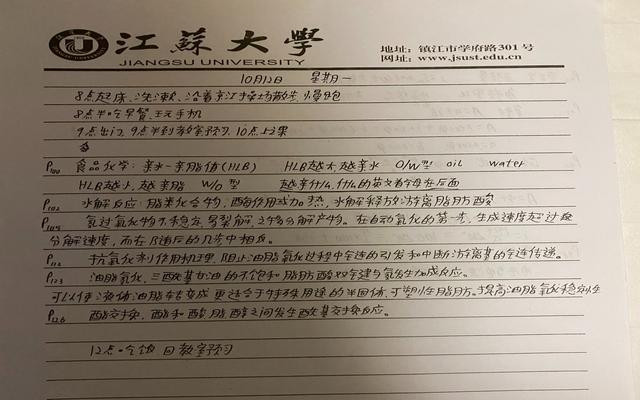 江苏大学
JIANGSU UNIVERSITY
地址：镇江市学府路301号
网址：www.jsust.edu.cn
10月12日 星期一
8点起床、洗漱、沿着京江操场散步 慢跑
8点半吃早餐、玩手机
9点出门，9点半到教室预习，10点上课
P100 食品化学：亲水-亲脂值(HLB) HLB越大，越亲水 O/W型 oil water
HLB越小，越亲脂 W/O型 越亲什么，什么的英文首字母在后面
P102 水解反应：脂类化合物，酶作用或加热，水解释放游离脂肪酸
氢过氧化物不稳定，易裂解之物分解产物。在自动氧化的第一步，生成速度超过
分解速度，而在随后的几步中相反。
P114 抗氧化剂作用机理，阻止油脂氧化过程中全连的引发和中断游离基的全连传递。
P123 油脂氢化，三酰基甘油的不饱和脂肪酸双键与氢发生加成反应。
可以使液体油脂转变成更适合于特殊用途的半固体，可塑性脂肪。提高油脂氧化稳定性
P126 酯交换，酯和酸 脂 醇之间发生酰基交换反应。
12点吃饭 回教室预习